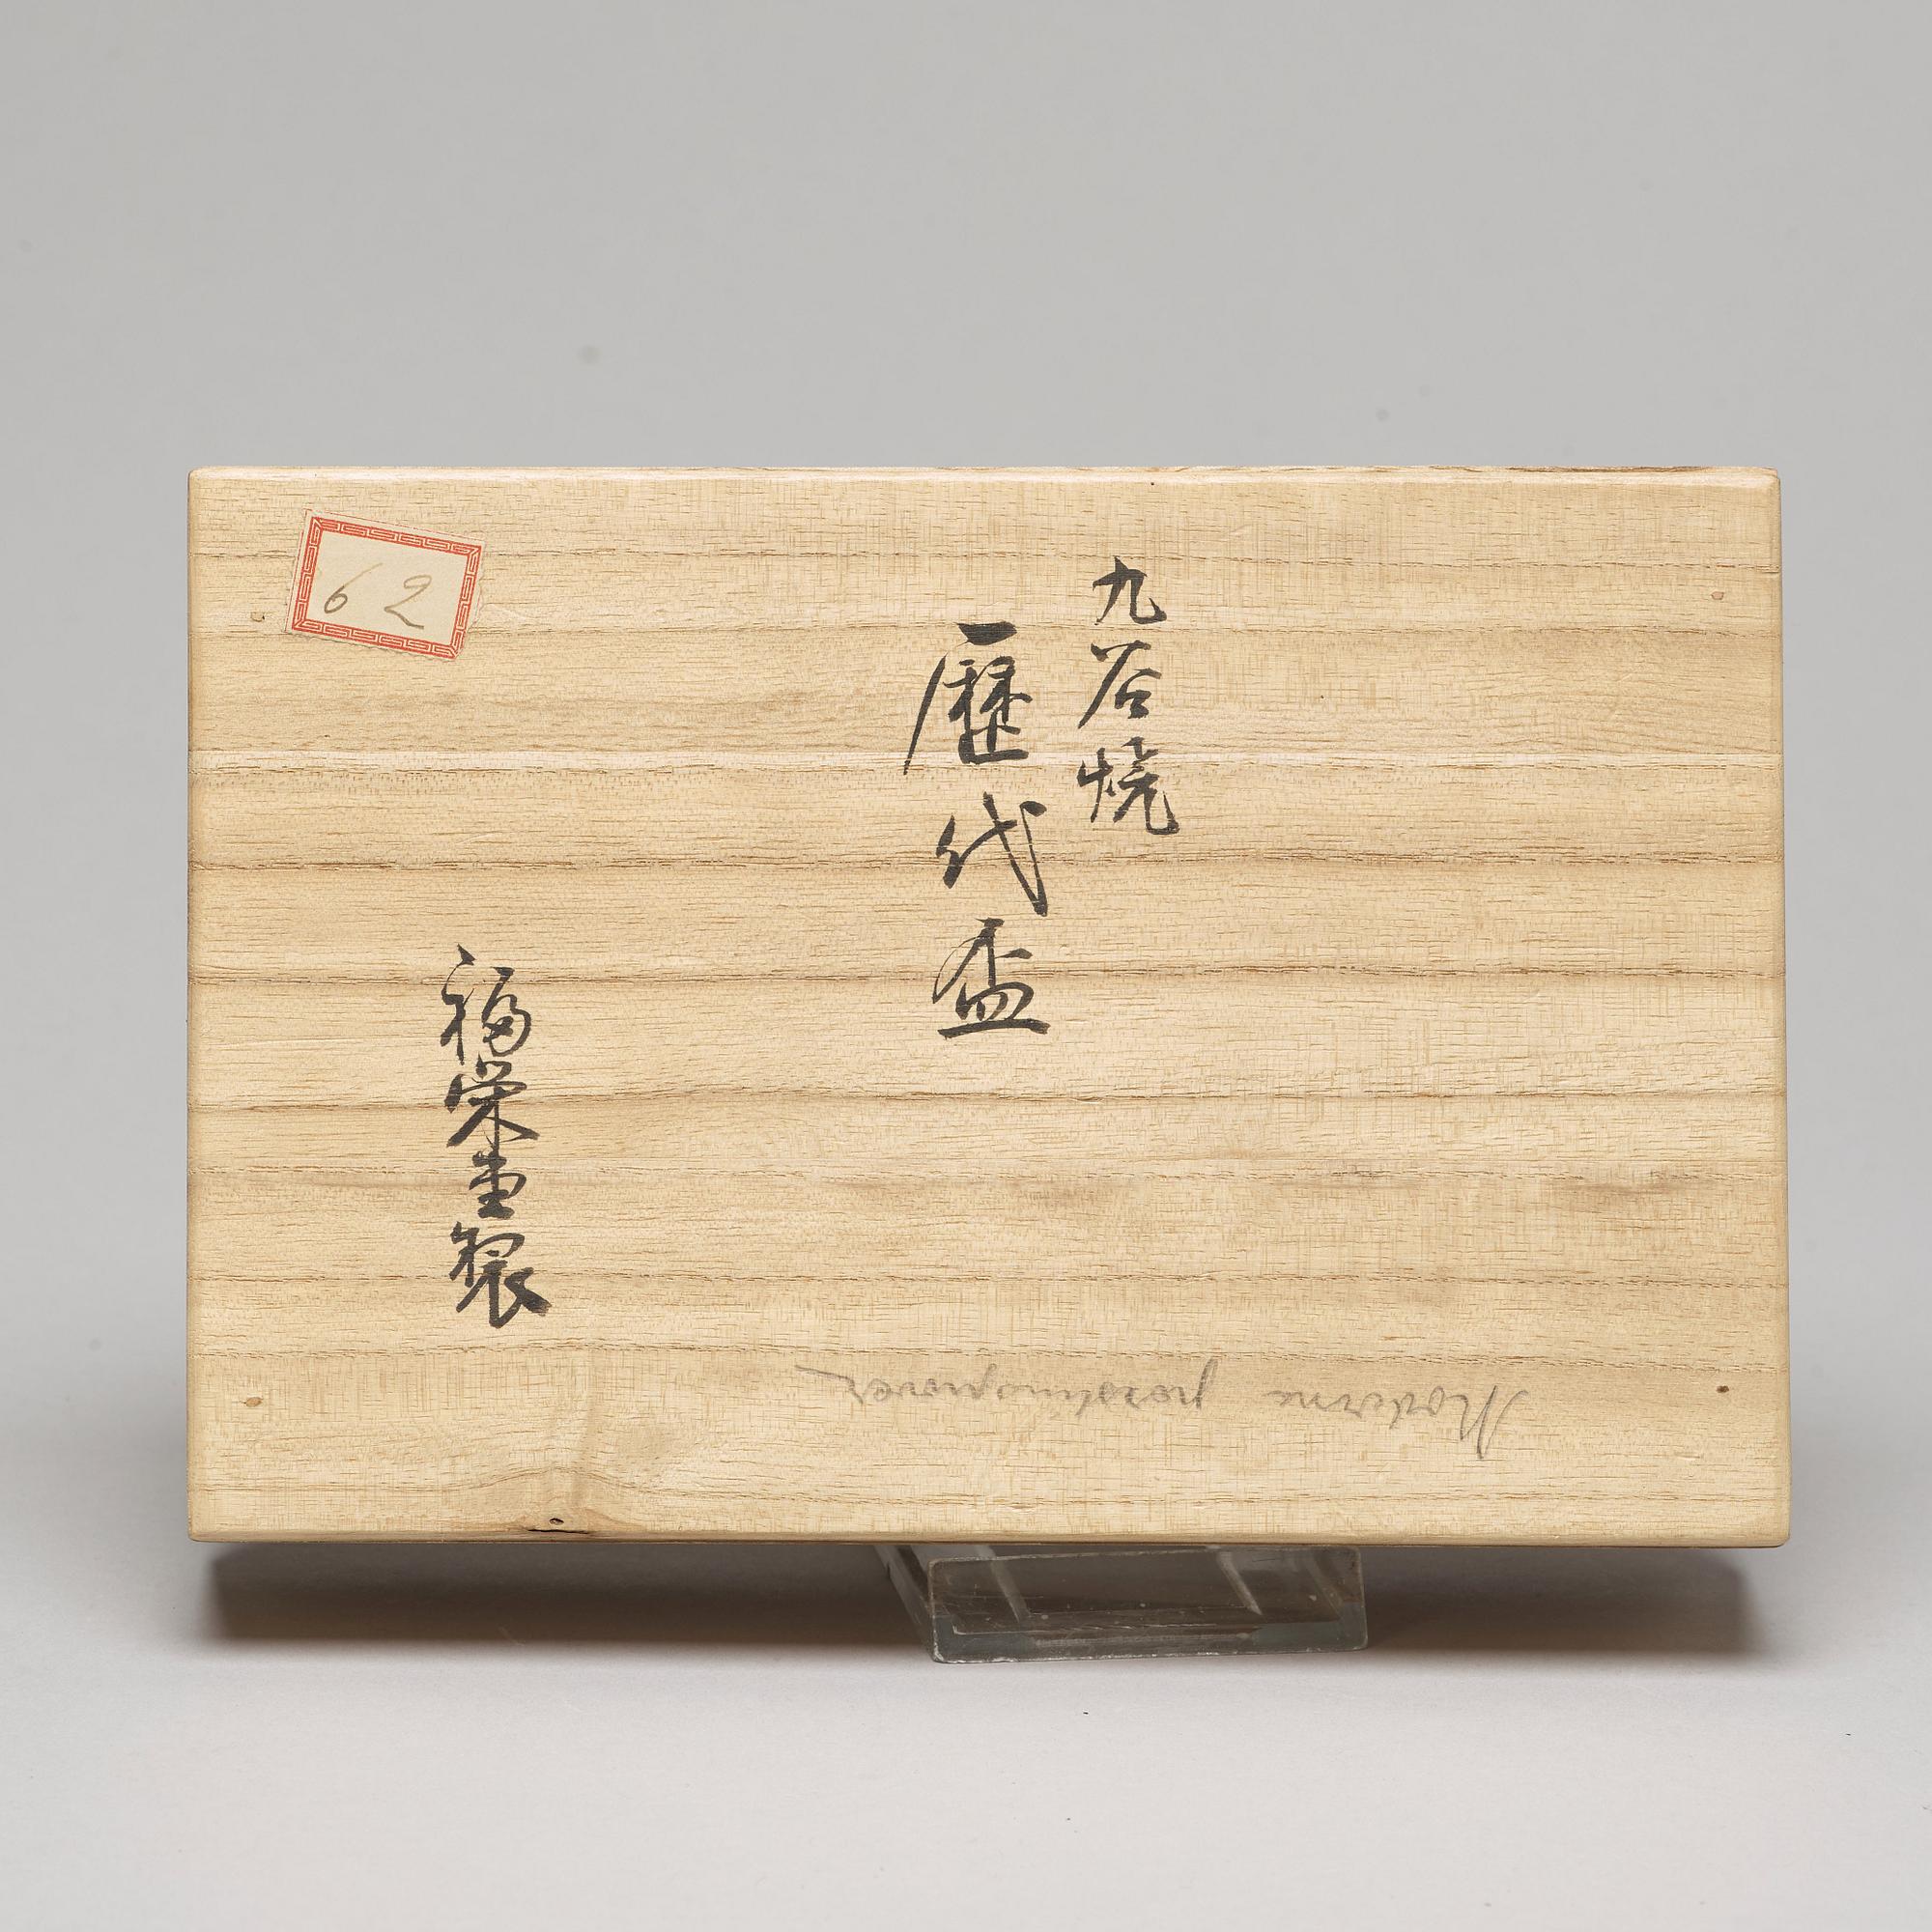 九谷焼
歴代盃
福栄堂製
62
Moderne